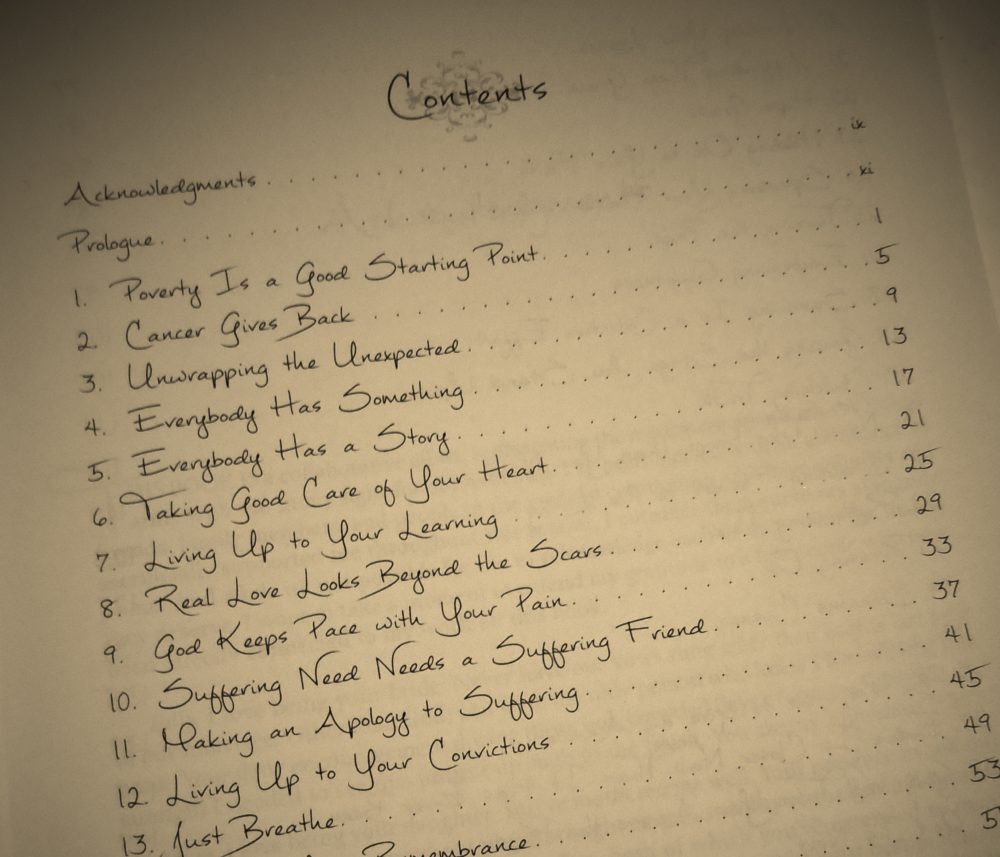 Contents
Acknowledgments . . . . . . . . . . ix
Prologue . . . . . . . . . . xi
1. Poverty Is a Good Starting Point . . . . . . . . . . 1
2. Cancer Gives Back . . . . . . . . . . 5
3. Unwrapping the Unexpected . . . . . . . . . . 9
4. Everybody Has Something . . . . . . . . . . 13
5. Everybody Has a Story . . . . . . . . . . 17
6. Taking Good Care of Your Heart . . . . . . . . . . 21
7. Living Up to Your Learning . . . . . . . . . . 25
8. Real Love Looks Beyond the Scars . . . . . . . . . . 29
9. God Keeps Pace with Your Pain . . . . . . . . . . 33
10. Suffering Need Needs a Suffering Friend . . . . . . . . . . 37
11. Making an Apology to Suffering . . . . . . . . . . 41
12. Living Up to Your Convictions . . . . . . . . . . 45
13. Just Breathe . . . . . . . . . . 49
Remembrance . . . . . . . . . . 53